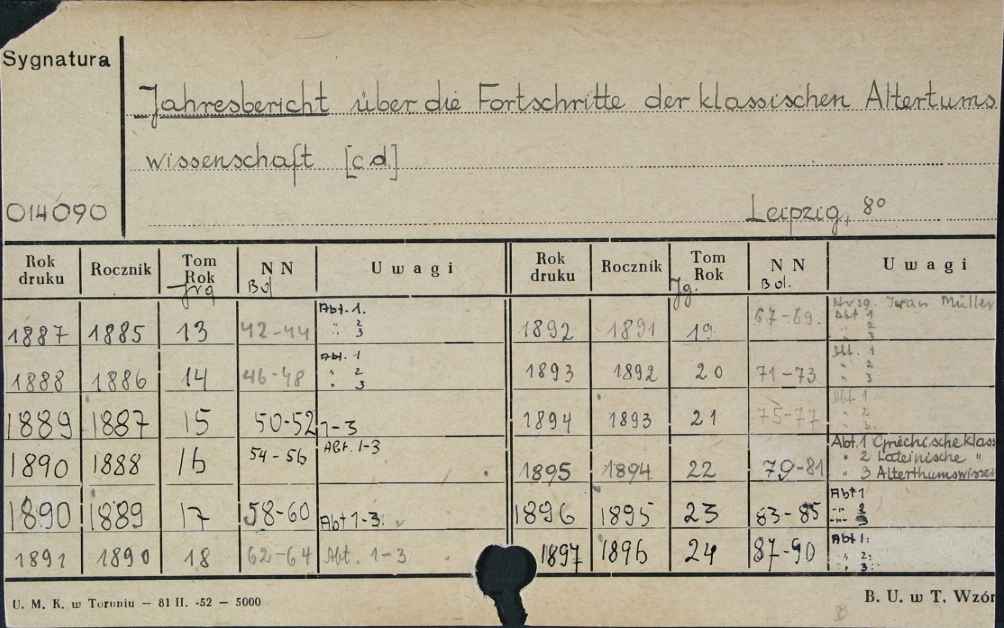 Sygnatura
Jahresbericht über die Fortschritte der klassischen Altertums
wissenschaft [cd]
014090
Leipzig, 8°
Rok druku Rocznik Tom Rok Jrg NN Bd Uwagi
1887 1885 13 42-44 Abt. 1. " 2 " 3
1888 1886 14 46-48 Abt. 1 " 2 " 3
1889 1887 15 50-52 1-3
1890 1888 16 54-56 Abt. 1-3
1890 1889 17 58-60 Abt 1-3.
1891 1890 18 62-64 Abt. 1-3
Rok druku Rocznik Tom Rok Jg. NN Bd. Uwagi
1892 1891 19 67-69. Hrsg. Iwan Müller Abt 1 " 2 " 3
1893 1892 20 71-73 Abt. 1 " 2 " 3
1894 1893 21 75-77 Abt 1 " 2 " 3.
1895 1894 22 79-81 Abt. 1 Griechische Klass " 2 Lateinische " " 3 Alterthumswissen
1896 1895 23 83-85 Abt 1 " 2 " 3
1897 1896 24 87-90 Abt 1. " 2. " 3.
U. M. K. w Toruniu — 81 II. -52 — 5000
B. U. w T. Wzór